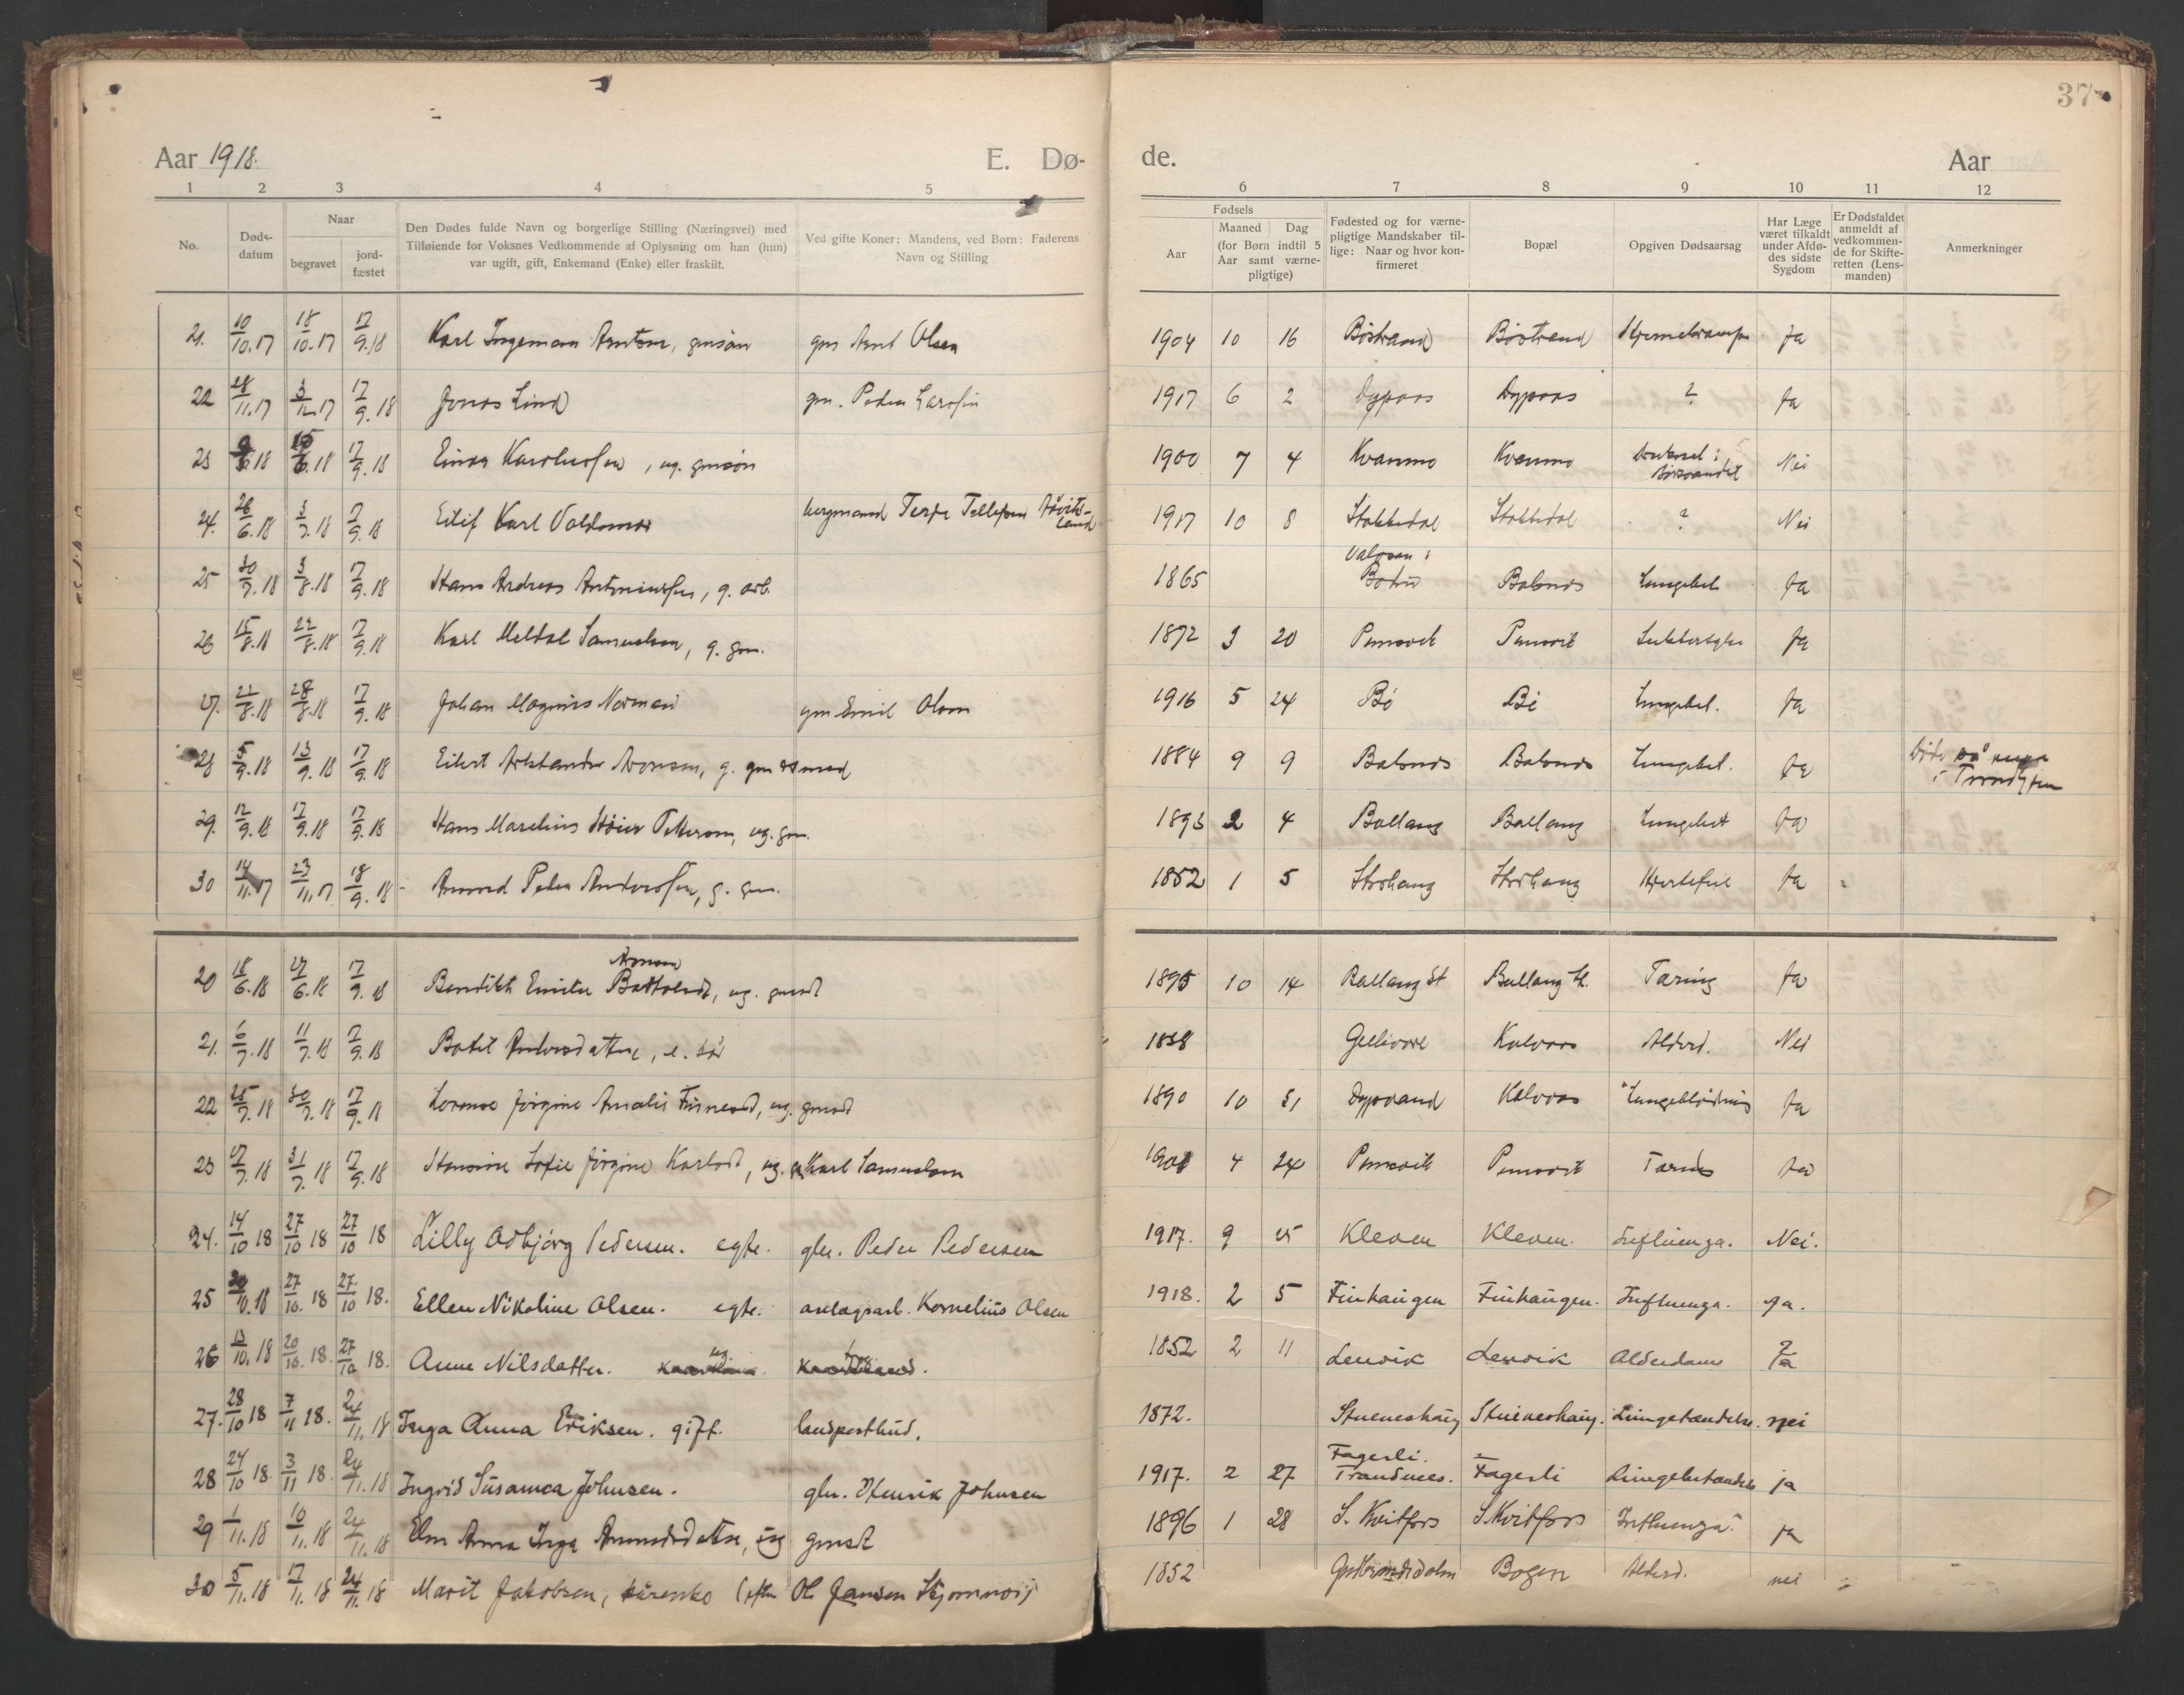 37
Aar 1918. E. Dø- de. Aar
1 2 3 4 5 6 7 8 9 10 11 12
No.
Døds-
datum
Naar
begravet
jord-
fæstet
Den Dødes fulde Navn og borgerlige Stilling (Næringsvei) med
Tilføiende for Voksnes Vedkommende af Oplysning om han (hun)
var ugift, gift, Enkemand (Enke) eller fraskilt.
Ved gifte Koner: Mandens, ved Børn: Faderens
Navn og Stilling
Fødsels
Aar
Maaned Dag
(for Børn indtil 5
Aar samt værne-
pligtige)
Fødested og for værne-
pligtige Mandskaber til-
lige: Naar og hvor kon-
firmeret
Bopæl
Opgiven Dødsaarsag
Har Læge
været tilkaldt
under Afdø-
des sidste
Sygdom
Er Dødsfaldet
anmeldt af
vedkommen-
de for Skifte-
retten (Lens-
manden)
Anmerkninger
21. 10/10.17 18/10.17 17/9.18 Karl Ingeman Arntsen, gmsøn gm Arnt Olsen 1904 10 16 Bøstrand Bøstrand Ja
22 28/11.17 3/12.17 17/9.18 Jonas Lind gm. Peder 1917 6 2 Dypaas Dypaas ? Ja
23 18 18 17/9.18 Einar, ug. gmsøn 1900 7 4 Kvanmo Kvanmo Nei
24. 26/6.18 3/7.18 17/9.18 Eilif Karl Valdemar bergmand Terje Tellefsen 1917 10 8 Stokkedal Stokkedal ? Nei
25 30/7.18 3/8.18 17/9.18 Hans Andreas Antoniussen, g. arb. 1865 Bodin Balsnes Lungebet. Ja
26 15/8.18 22/8.18 17/9.18 Karl Meldal Samuelsen, g. gm. 1872 3 20 Pumsvik Pumsvik Sukkersyke Ja
27. 21/8.18 28/8.18 17/9.18 Johan Magnus Normand gm Emil Olsen 1916 5 24 Bø Bø Lungebet. Ja
28 5/9.18 13/9.18 17/9.18 Eilert Aronsen, g. gm 1884 9 9 Balsnes Balsnes Lungebet. Ja Døde på
29. 12/9.18 17/9.18 17/9.18 Hans Marelius Høier Petersen, ug. gm. 1893 2 4 Ballang Ballang Lungebet Ja
30 14/11.17 23/11.17 18/9.18 Amund Peder Anderssen, g. gm. 1852 1 5 Hjertefeil Ja
20 18/6.18 27/6.18 17/9.18 Aronsen
Bendikte Emilie, ug. gmdt 1895 10 14 Ballang St Ballang St. Tæring Ja
21. 6/7.18 11/7.18 17/9.18 Botel Andersdatter, e. 1838 Gellivare Kalvaas Alderd. Nei
22 25/7.18 30/7.18 17/9.18 Lorense Jørgine Amalie, ug. gmdt 1890 10 31 Dypvand Kalvaas Lungeblødning Ja
23 27/7.18 31/7.18 17/9.18 Sofie Jørgine Karlsdt, ug. Karl Samuelsen 1901 4 24 Pumsvik Pumsvik Ja
24. 14/10 18 27/10 18 27/10 18 Lilly Odbjørg Pedersen. egte. gbr. Peder Pedersen 1917. 9 25 Kleven Kleven. Influenza. Nei.
25 20/10.18 27/10. 18 27./10 18. Ellen Nikoline Olsen. egte. anlægsarb. Kornelius Olsen 1918. 2 5 Finhaugen Finhaugen. Influenza. ja.
26 13/10.18 20/10.18. 27/10 18. Anne Nilsdatter. ug 1852 2 11 Lenvik Lenvik Alderdom ?
Ja
27. 28/10 18 7/11 18. 24/11.18 Inga Anna Eriksen. gift. landpostbud. 1872. Stueneshaug Stueneshaug. Lungebetændelse. nei
28 24/10 18. 3/11 18. 24/11.18 Ingrid Susanna Johnsen. gbr. Henrik Johnsen 1917. 2 27 Fagerli.
Trandnes. Fagerli Lungebetændelse ja
29 1/11.18 10/11.18 24/11.18 Elen Anna Inga Amundsdatter, ug gmdt 1896 1 28 S. Kvitfors S. Kvitfors Influenza ja
30 5/11.18 17/11.18 24/11.18 Marit Jakobsen, kårenke (efter Ole Jansen Skjomnes) 1852 Bogen Alderd. nei